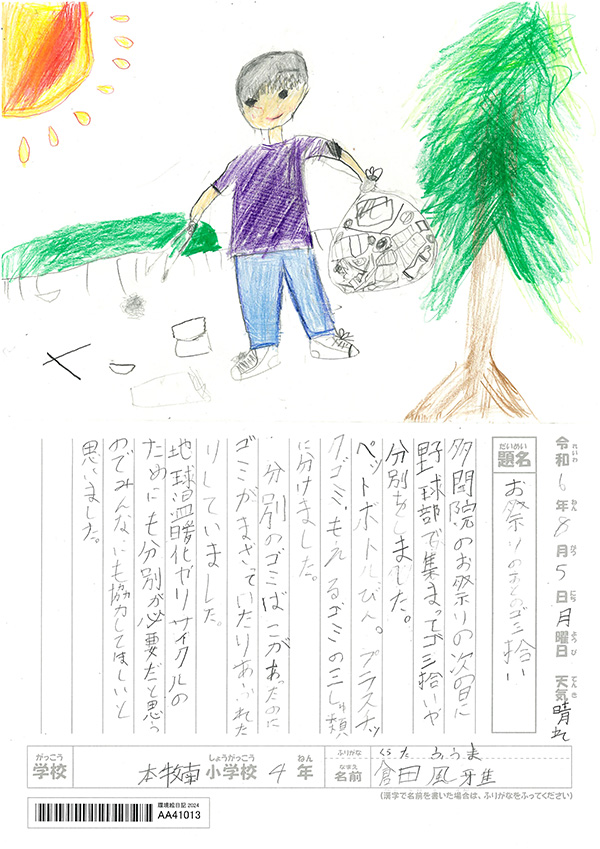 令和6年8月5日月曜日 天気晴れ
れいわ ねん がつ にち ようび てんき
だいめい
題名
お祭りのあとのゴミ拾い
多聞院のお祭りの次の日に
野球部で集まってゴミ拾いや
分別をしました。
ペットボトルびん。プラスチッ
クゴミ、もえるゴミの三しゅ類
に分けました。
分別のゴミばこがあったのに
ゴミがまざっていたりあふれた
りしていました。
地球温暖化やリサイクルの
ためにも分別が必要だと思う
のでみんなにも協力してほしいと
思いました。
がっこう しょうがっこう ねん
学校 本牧南小学校 4年
ふりがな くらた ふうま
なまえ
名前 倉田
(漢字で名前を書いた場合は、ふりがなをふってください)
環境絵日記2024
AA41013